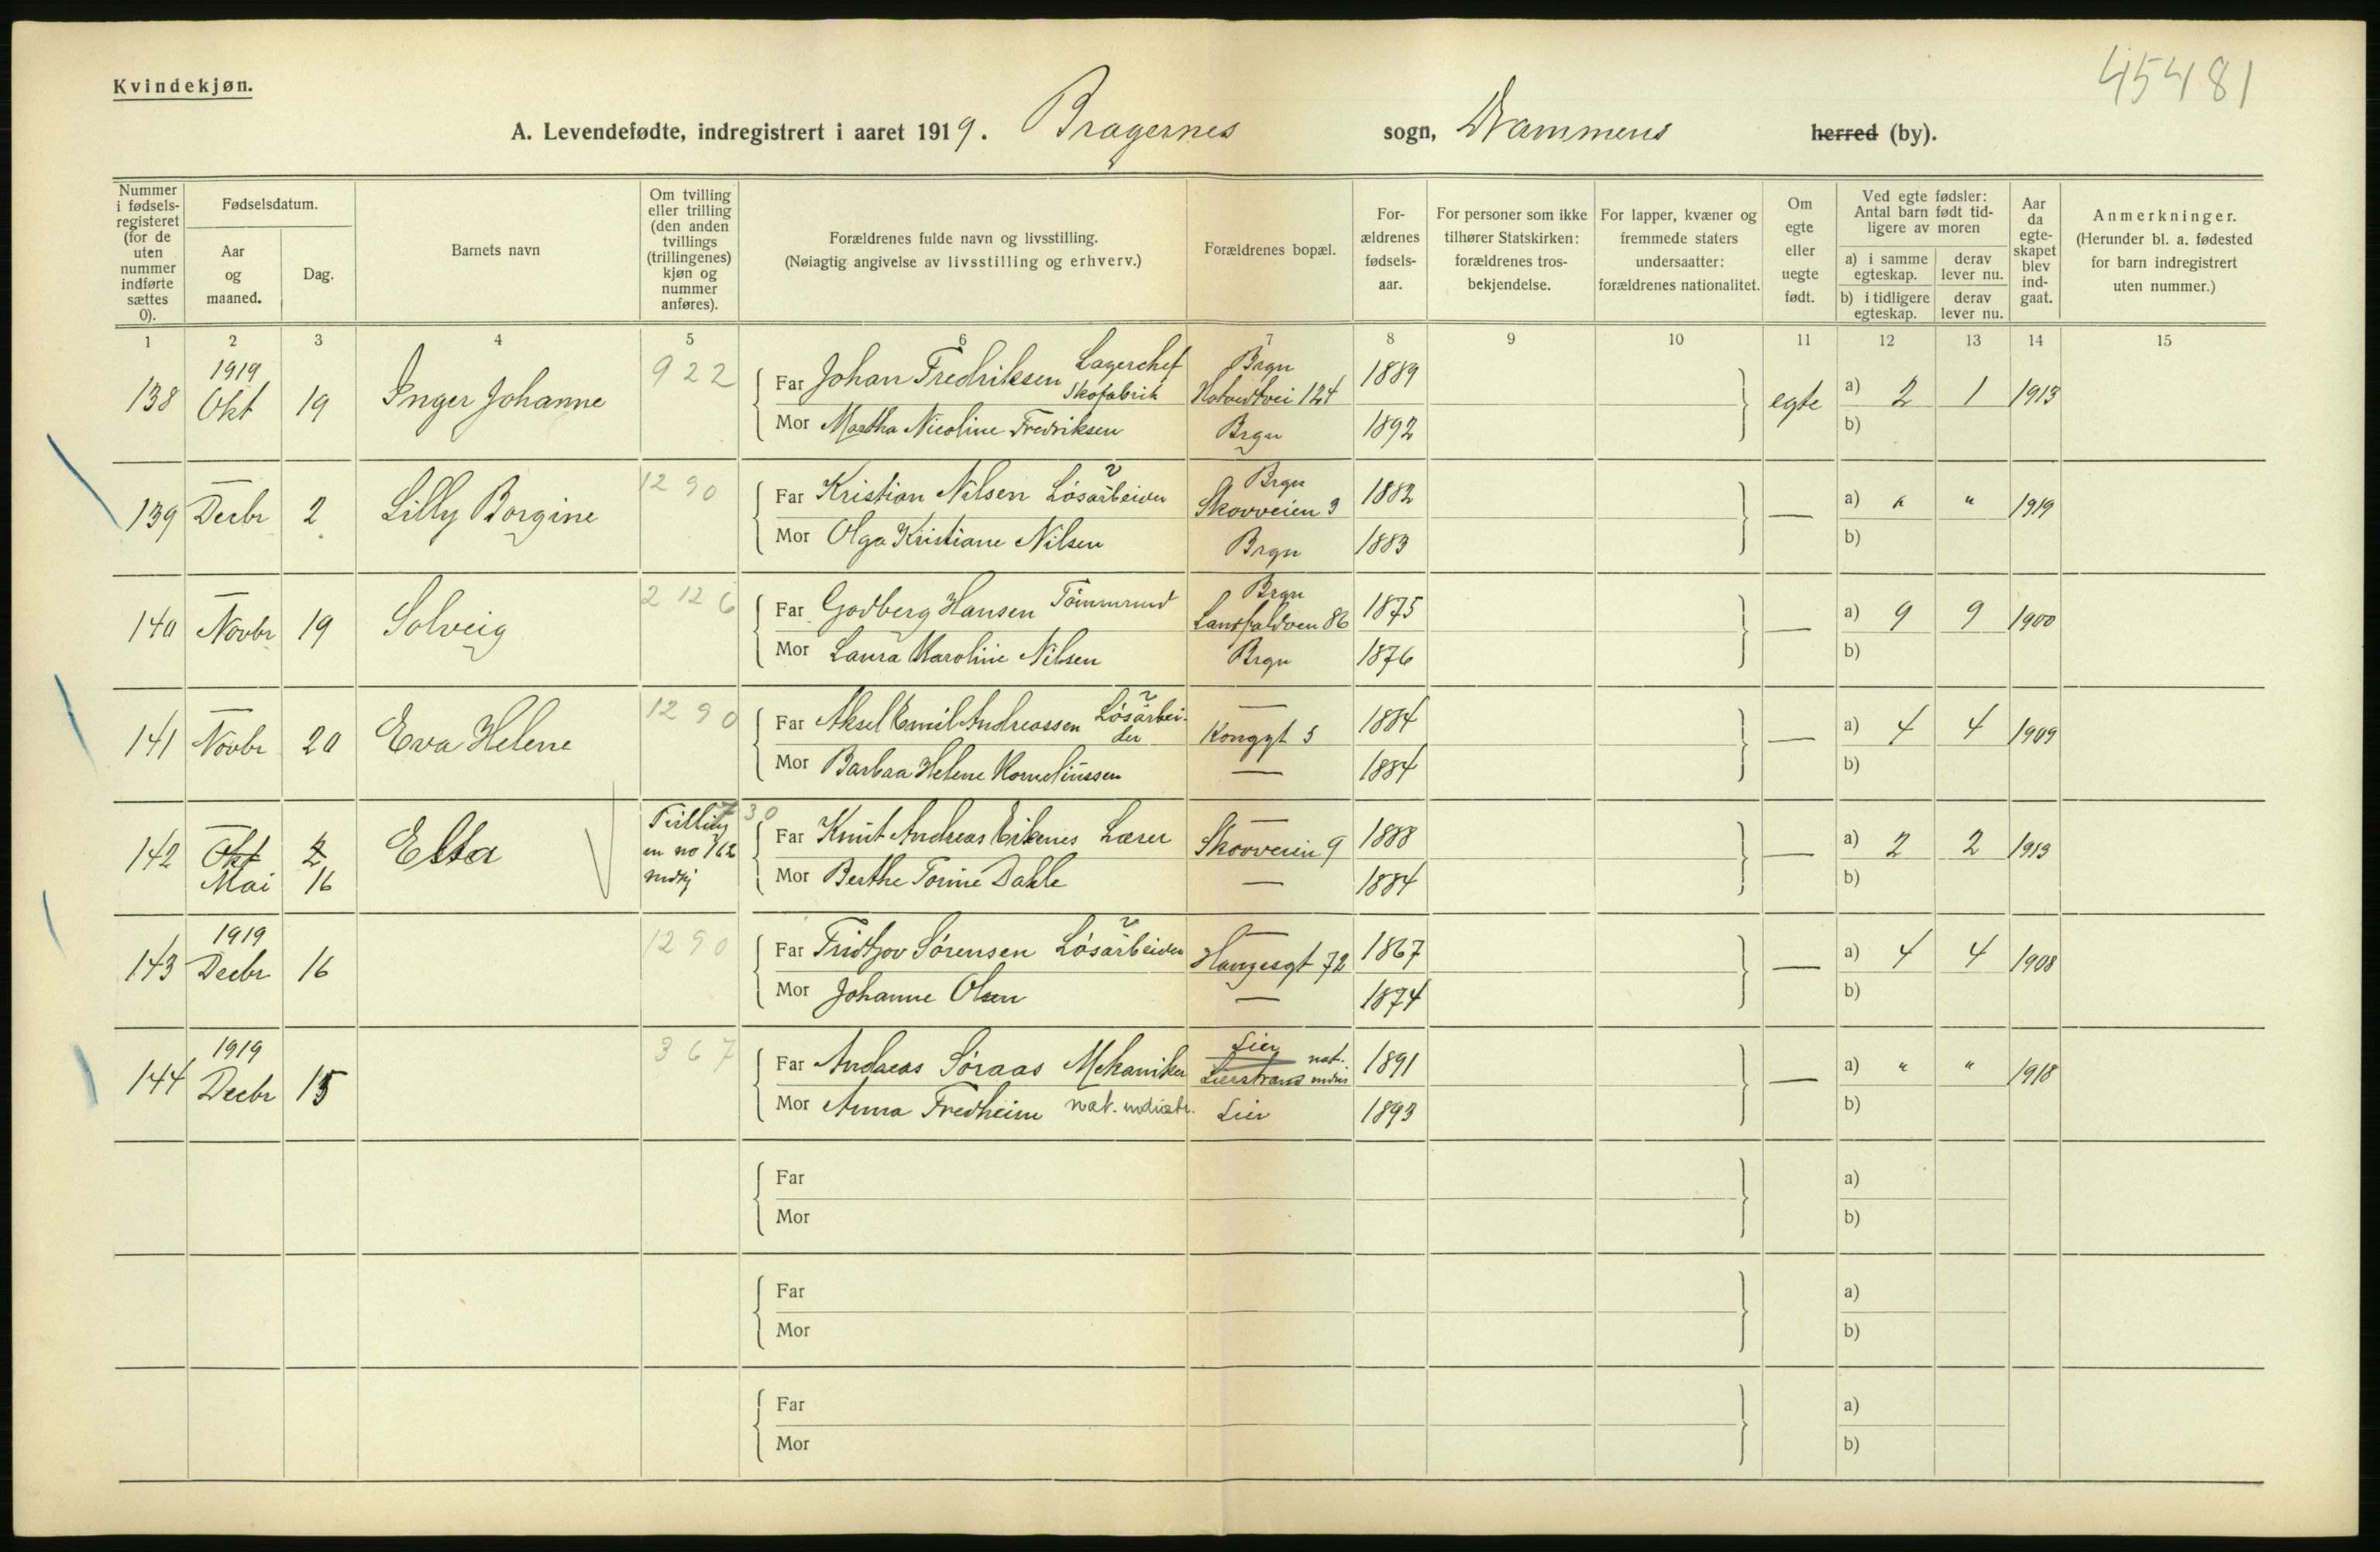 45481
Kvindekjøn.
A. Levendefødte, indregistrert i aaret 1919. Bragernes sogn, Drammens herred (by).
Nummer i fødsels-registeret (for de uten nummer indførte sættes 0).
Fødselsdatum.
Aar og maaned.
Dag.
Barnets navn
Om tvilling eller trilling (den anden tvillings (trillingenes) kjøn og nummer anføres).
Forældrenes fulde navn og livsstilling.
(Nøiagtig angivelse av livsstilling og erhverv.)
Forældrenes bopæl.
For-ældrenes fødsels-aar.
For personer som ikke tilhører Statskirken: forældrenes tros-bekjendelse.
For lapper, kvæner og fremmede staters undersaatter: forældrenes nationalitet.
Om egte eller uegte født.
Ved egte fødsler: Antal barn født tid-ligere av moren
a) i samme egteskap.
derav lever nu.
b) i tidligere egteskap.
derav lever nu.
Aar da egte-skapet blev ind-gaat.
Anmerkninger.
(Herunder bl. a. fødested for barn indregistrert uten nummer.)
1 2 3 4 5 6 7 8 9 10 11 12 13 14 15
138 1919 Okt 19 Inger Johanne 922 Far Johan Fredriksen Lagerchef Skofabrik Brgn 124 1889 egte a) 2 1 1913
Mor Martha Nicoline Fredriksen Brgn 1892 b)
139 — Decbr 2 Lilly Borgine 1290 Far Kristian Nilsen Løsarbeider Brgn Skovveien 3 1882 — a) " " 1919
Mor Olga Kristiane Nilsen Brgn 1883 b)
140 — Novbr 19 Solveig 2126 Far Godberg Hansen Tømmrmd Brgn 86 1875 — a) 9 9 1900
Mor Laura Karoline Nilsen Brgn 1876 b)
141 — Novbr 20 Eva Helene 1290 Far Aksel Emil Andreassen Løsarbei-der — Konggt 5 1884 — a) 4 4 1909
Mor Barbra Helene Korneliussen — 1884 b)
142 — Okt 2 Mai 16 Elsa 730 Far Knut Andreas Eikenes Lærer — Skovveien 9 1888 — a) 2 2 1913
Mor Berthe Torine Dahle — 1884 b)
143 1919 Decbr 16 1290 Far Fridtjov Sørensen Løsarbeider — Haugesgt 72 1867 — a) 4 4 1908
Mor Johanne Olsen — 1874 b)
144 1919 Decbr 15 367 Far Andreas Søraas Mekaniker Lier Lierstrand 1891 — a) " " 1918
Mor Anna Fredheim Lier 1893 b)
Far a)
Mor b)
Far a)
Mor b)
Far a)
Mor b)